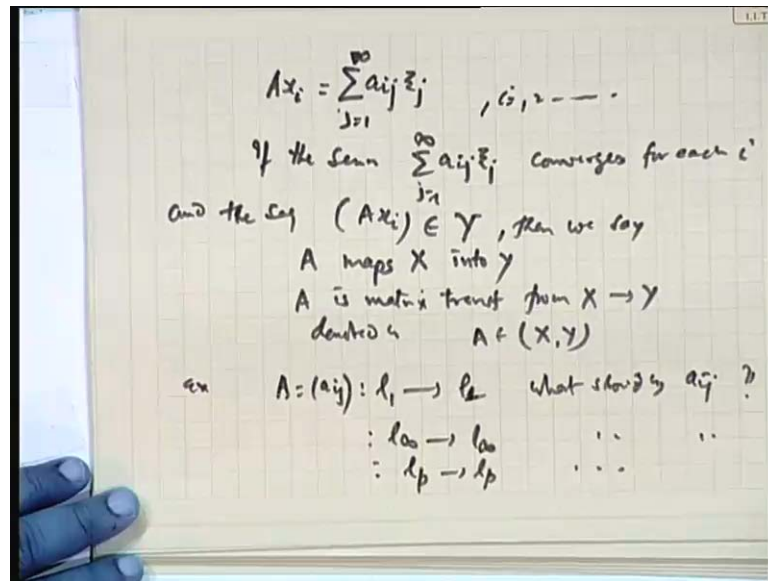 I.I.T
Ax_i = ∑_{j=1}^{∞} a_{ij} ξ_j , i=1, 2 - - - - .
If the series ∑_{j=1}^{∞} a_{ij} ξ_j converges for each i
and the seq (Ax_i) ∈ Y, then we say
A maps X into Y
A is matrix transf from X → Y
denoted by A ∈ (X, Y)
ex A = (a_{ij}) : l_1 → l_1 what should be a_{ij} ?
: l_∞ → l_∞ " "
: l_p → l_p . . .